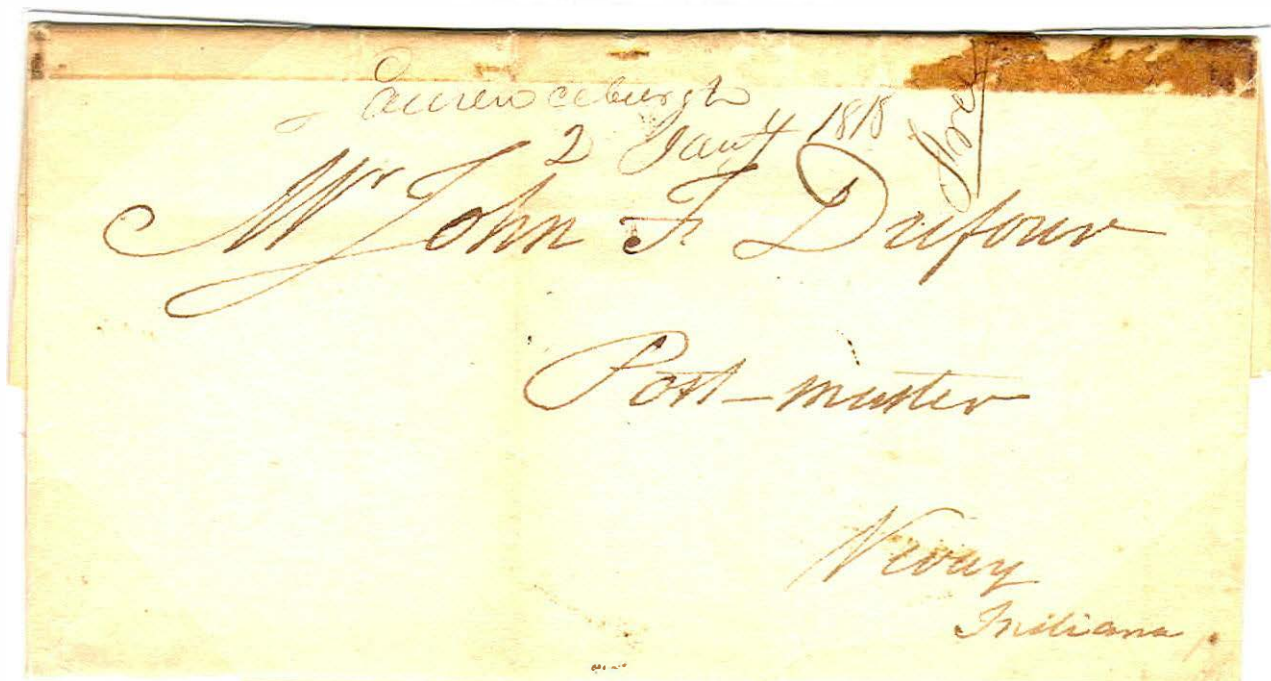 Lawrenceburgh
2 Jany 1818
Free
Mr John F Dufour
Post-master
Vevay
Indiana